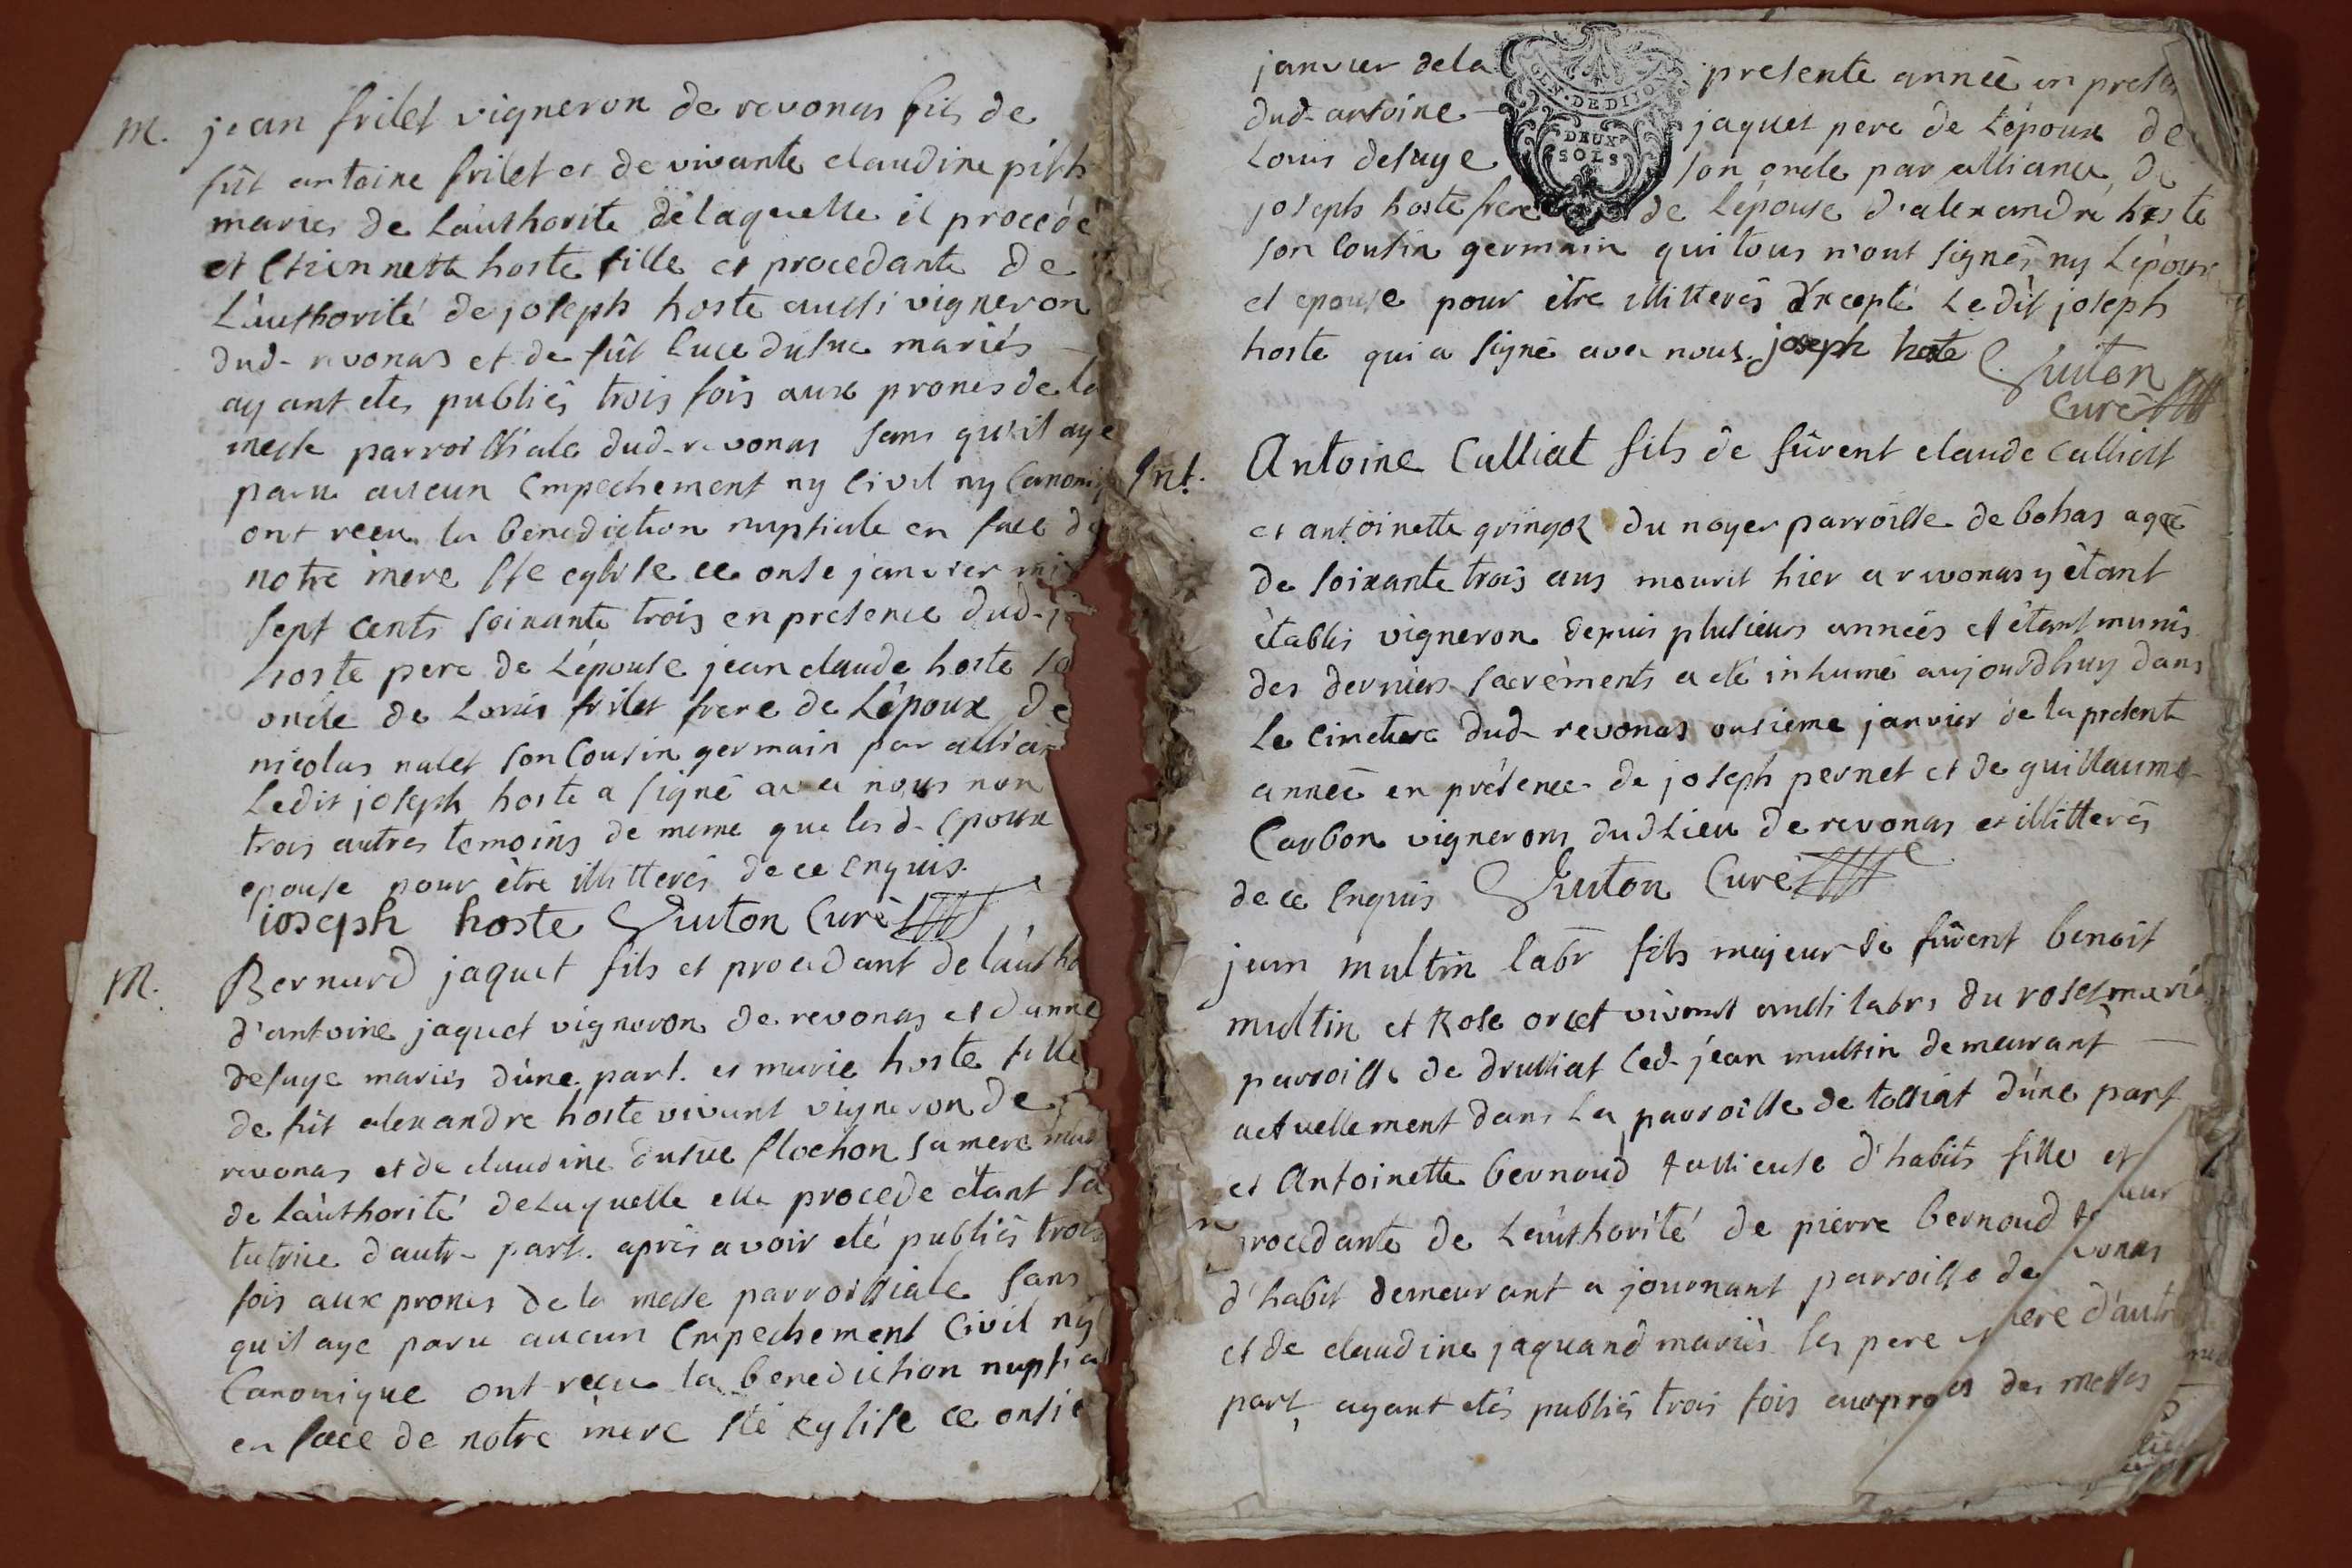 M. jean frilet vigneron de revonas fils de
fût antoine frilet et de vivante claudine
maries de l'authorite de laquelle il procéde
et Etiennette hoste fille et procedante de
L'authorité de joseph hoste aussi vigneron
dud- revonas et de fût Luce dusue mariés
ayant etes publiés trois fois aux prones de la
messe parroissiale dud- revonas sans qu'il aye
paru aucun Empechement ny Civil ny Canoni
ont recu la benediction nuptiale en face de
notre mere Ste eglise ce onse janvier mi
sept cents soixante trois en presence dud- j
hoste pere de L'épouse jean claude hoste so
oncle de Louis frilet frere de L'époux de
nicolas nalet son Cousin germain par allian
Ledit joseph hoste a signé avec nous non
trois autres temoins de meme que les d- Epoux
epouse pour être illitterés de ce Enquis.
joseph hoste Guiton Curé
M. Bernard jaquet fils et procedant de l'autho
d'antoine jaquet vigneron de revonas et d'anne
desaye mariés d'une part. et marie hoste fille
de fût alexandre hoste vivant vigneron de
revonas et de claudine dusue flochon sa mere
de L'authorité de Laquelle elle procede étant sa
tutrice d'autre part. après avoir eté publiés trois
fois aux prones de la messe parroissiale sans
qu'il aye paru aucun Empechement Civil ny
Canonique ont recu la benediction nuptia
en face de notre mere Ste Eglise ce onsie
janvier de la presente année en prese
dud- antoine jaquet pere de L'époux de
Louis desaye son oncle par alliance, de
joseph hoste frere de L'épouse d'alexandre hoste
son Cousin germain qui tous n'ont signés ny L'époux
et epouse pour être illitterés Excepté Ledit joseph
hoste qui a signé avec nous. joseph hoste Guiton
Curé
GEN. DE DIJON
DEUX
SOLS
Ent. Antoine Calliat fils de fûrent claude calliat
et antoinette gringoz du noyer parroisse de bohas agée
de soixante trois ans mourit hier a revonas y étant
établis vigneron depuis plusieurs années et étant munis
des derniers sacrèments a eté inhumé aujourdhuy dans
Le cimetiere dud- revonas onsieme janvier de la presente
année en présence de joseph pernet et de guillaume
Carbon vignerons dud Lieu de revonas et illitterés
de ce Enquis Guiton Curé
jean multin labr fils majeur de fûrent benoit
multin et Rose orcet vivant aussi labrs du roset mariés
parroisse de druilliat led- jean multin demeurant
actuellement dans La parroisse de tossiat d'une part
et Antoinette bernoud tallieuse d'habits fille et
procedante de L'authorité de pierre bernoud
d'habit demeurant a journant parroisse de
et de claudine jaquand mariés les pere et d'autre
part, ayant etés publiés trois fois aux prones des messes